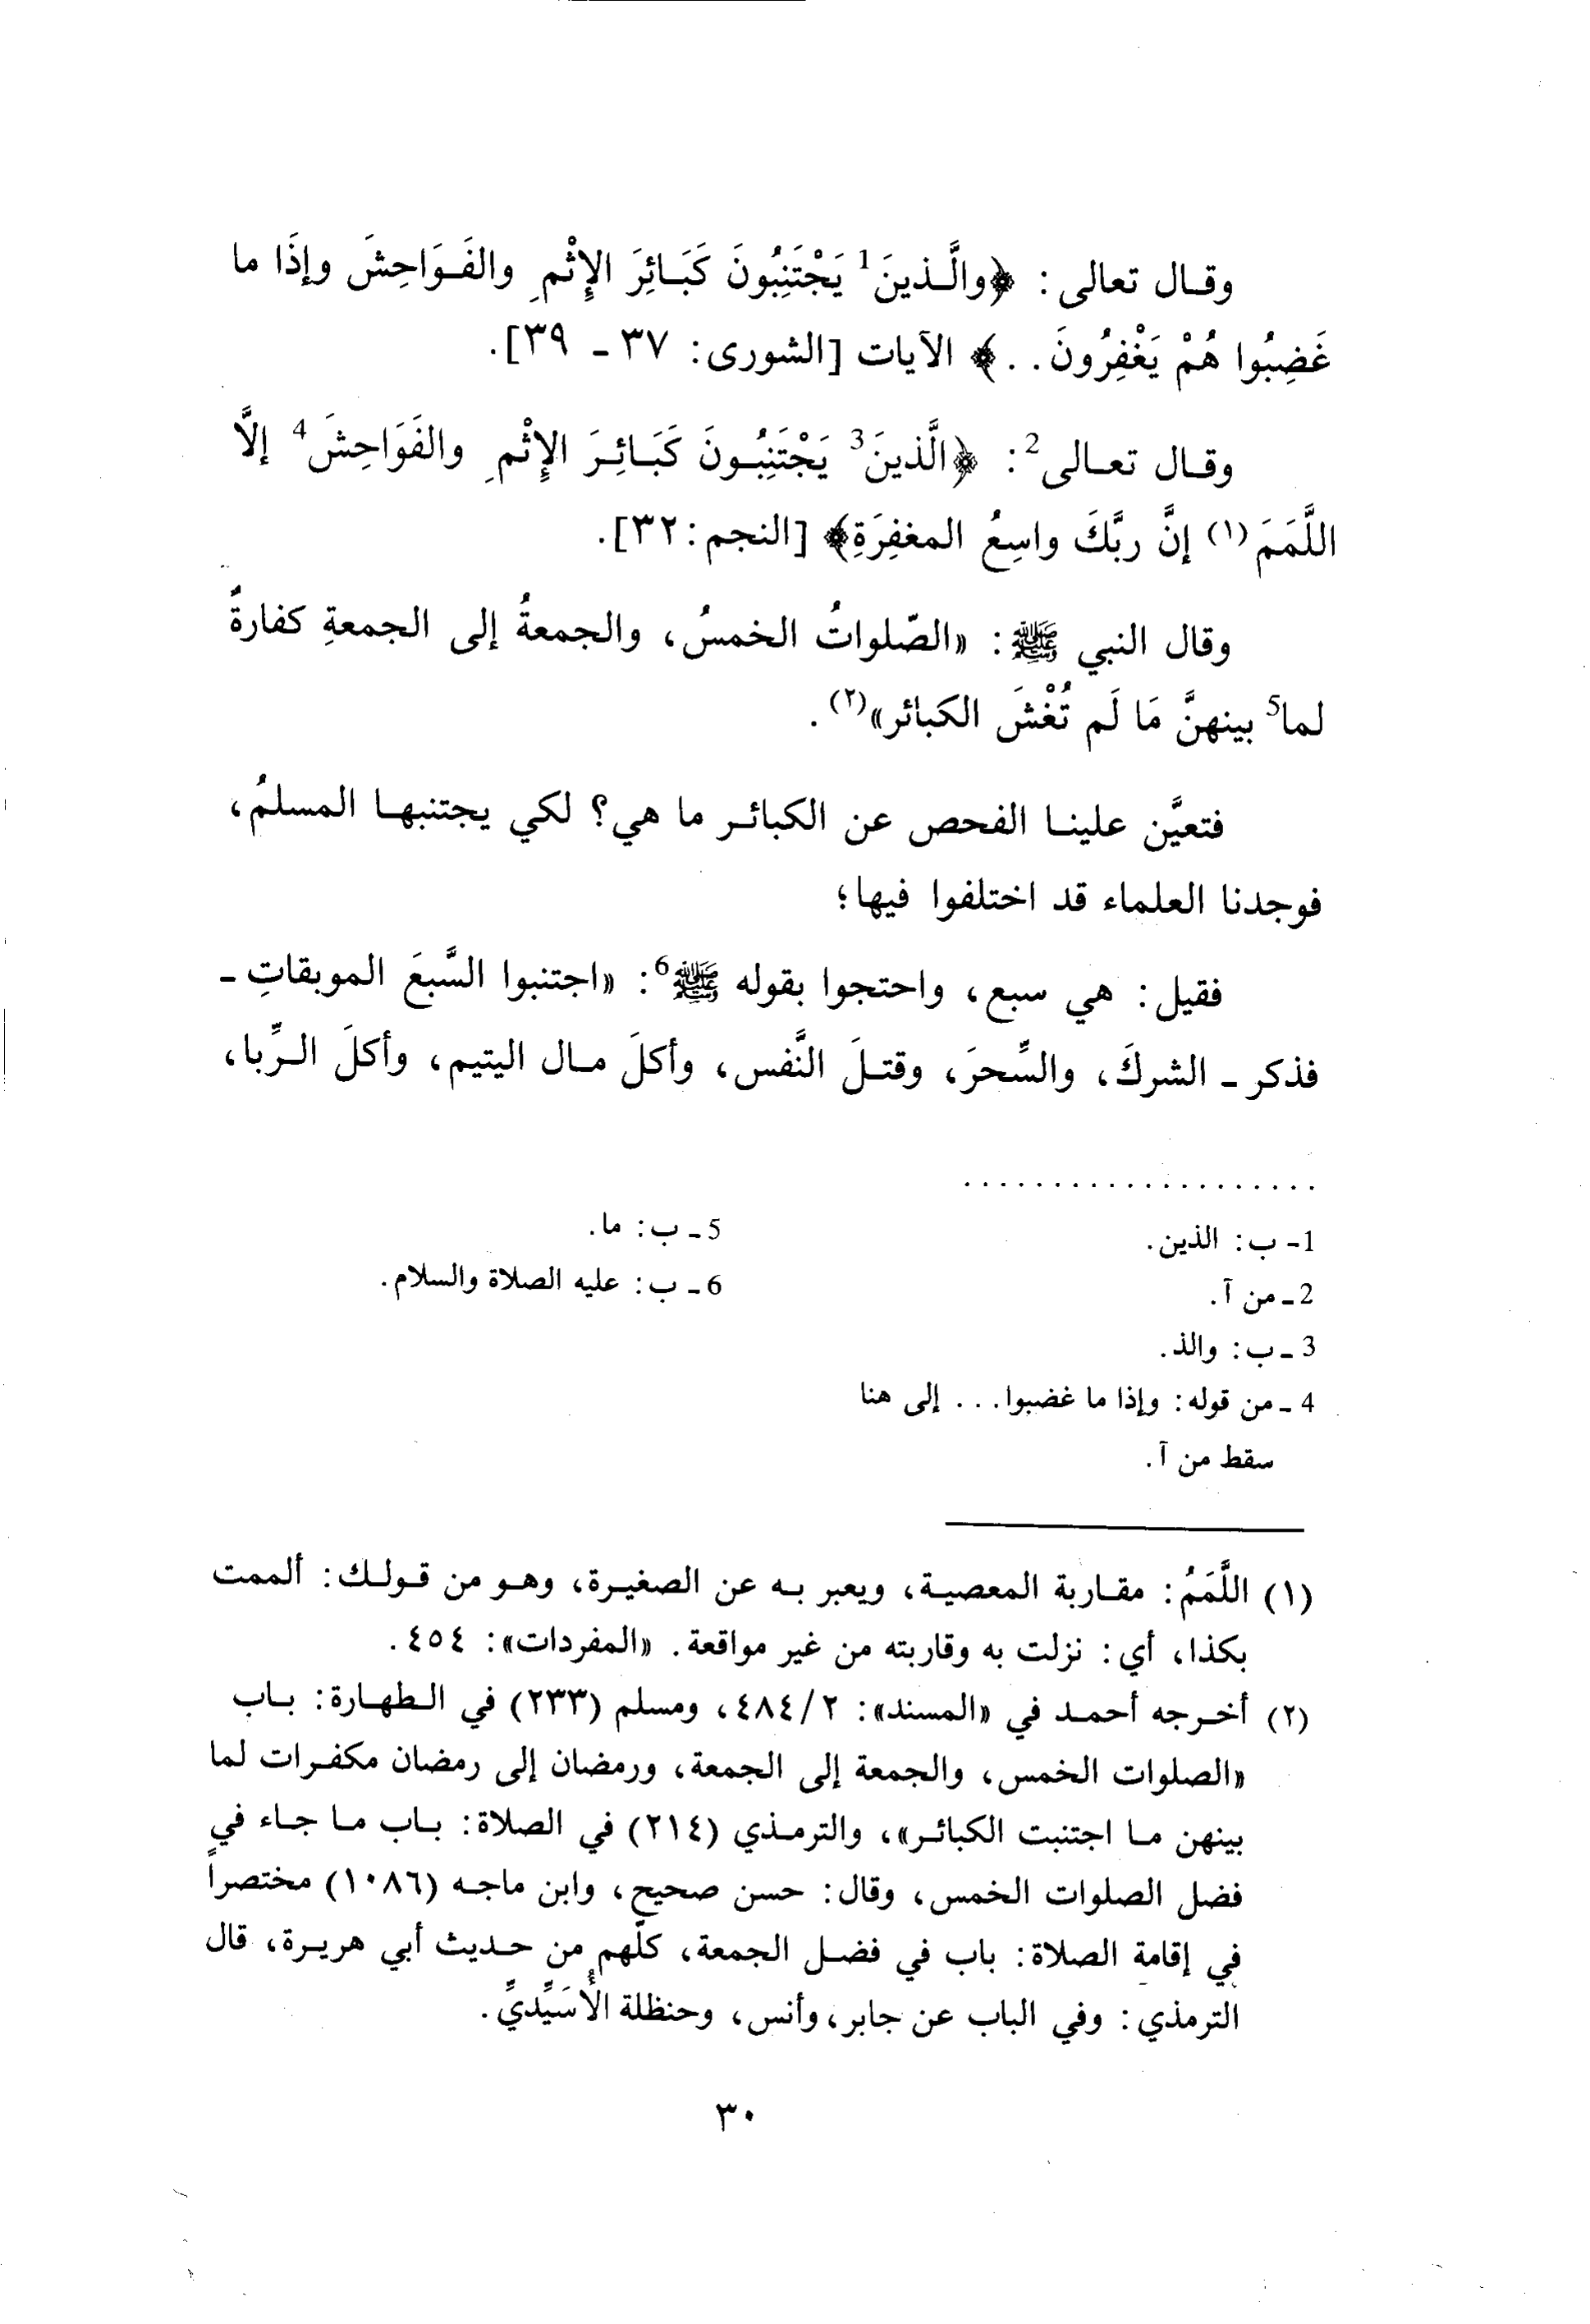 وقال تعالى: ﴿والَّذينَ1 يَجْتَنِبُونَ كَبَائِرَ الإِثْمِ والفَوَاحِشَ وإذَا ما
غَضِبُوا هُمْ يَغْفِرُونَ..﴾ الآيات [الشورى: ٣٧ - ٣٩].
وقال تعالى2: ﴿الَّذينَ3 يَجْتَنِبُونَ كَبَائِرَ الإِثْمِ والفَوَاحِشَ4 إلاَّ
اللَّمَمَ(١) إنَّ ربَّكَ واسِعُ المغفِرَةِ﴾ [النجم: ٣٢].
وقال النبي ﷺ: «الصّلواتُ الخمسُ، والجمعةُ إلى الجمعةِ كفارةٌ
لما5 بينهنَّ مَا لَم تُغْشَ الكبائر»(٢).
فتعيَّن علينا الفحص عن الكبائر ما هي؟ لكي يجتنبها المسلمُ،
فوجدنا العلماء قد اختلفوا فيها؛
فقيل: هي سبع، واحتجوا بقوله ﷺ6: «اجتنبوا السَّبعَ الموبقاتِ -
فذكر - الشركَ، والسِّحرَ، وقتلَ النَّفس، وأكلَ مال اليتيم، وأكلَ الرِّبا،
....................
1- ب: الذين.
2- من آ.
3- ب: والذ.
4- من قوله: وإذا ما غضبوا... إلى هنا
سقط من آ.
5- ب: ما.
6- ب: عليه الصلاة والسلام.
(١) اللَّمَمُ: مقاربة المعصية، ويعبر به عن الصغيرة، وهو من قولك: ألممت
بكذا، أي: نزلت به وقاربته من غير مواقعة. «المفردات»: ٤٥٤.
(٢) أخرجه أحمد في «المسند»: ٤٨٤/٢، ومسلم (٢٣٣) في الطهارة: باب
«الصلوات الخمس، والجمعة إلى الجمعة، ورمضان إلى رمضان مكفرات لما
بينهن ما اجتنبت الكبائر»، والترمذي (٢١٤) في الصلاة: باب ما جاء في
فضل الصلوات الخمس، وقال: حسن صحيح، وابن ماجه (١٠٨٦) مختصراً
في إقامة الصلاة: باب في فضل الجمعة، كلّهم من حديث أبي هريرة، قال
الترمذي: وفي الباب عن جابر، وأنس، وحنظلة الأُسَيِّديِّ.
٣٠